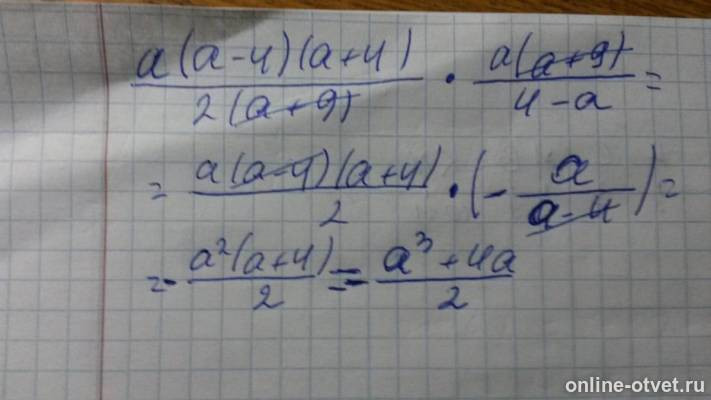 a(a-4)(a+4)/2(a+9) · a(a+9)/4-a =
= a(a-4)(a+4)/2 · (- a/a-4) =
= - a²(a+4)/2 = - a³+4a/2
online-otvet.ru